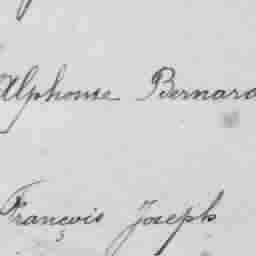 Alphonse Bernard
François Joseph